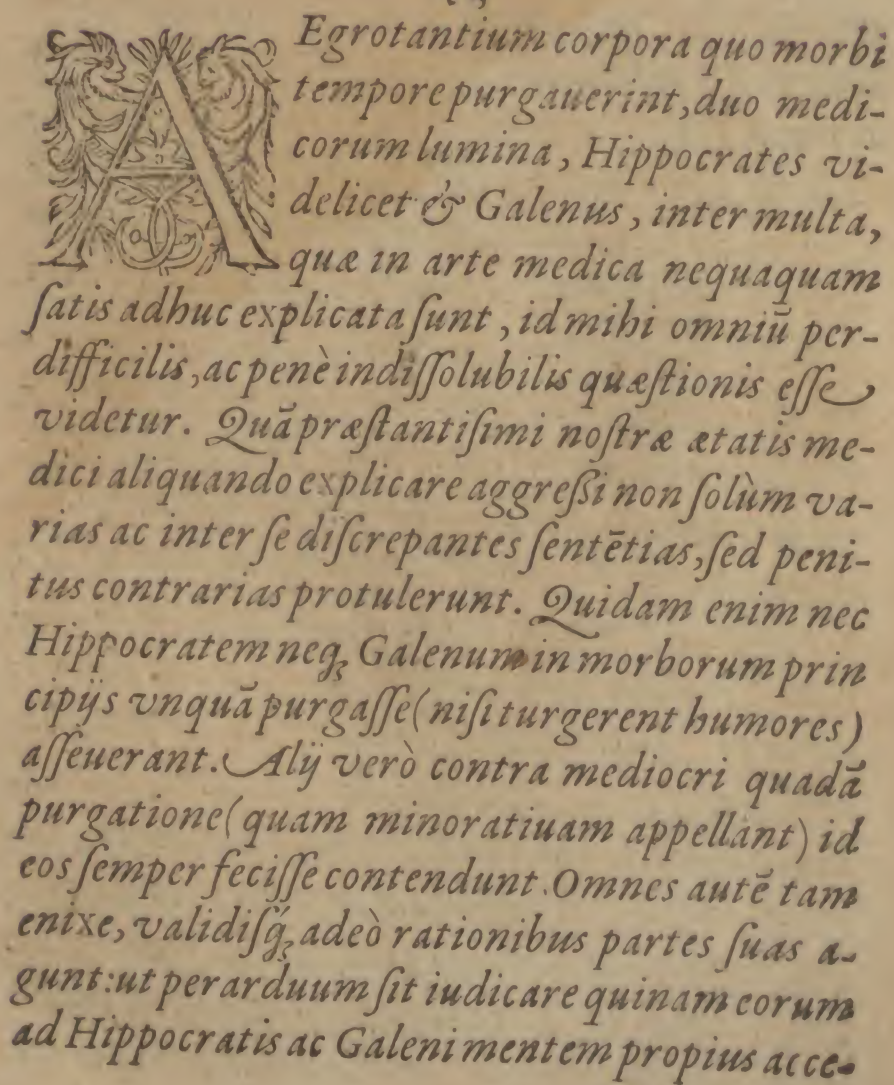 AEgrotantium corpora quo morbi
tempore purgauerint, duo medi-
corum lumina, Hippocrates vi-
delicet & Galenus, inter multa,
quæ in arte medica nequaquam
ſatis adhuc explicata ſunt, id mihi omniū per-
difficilis, ac penè indiſſolubilis quæſtionis eſſe
videtur. Quā præſtantiſimi noſtræ ætatis me-
dici aliquando explicare aggreßi non ſolùm va-
rias ac inter ſe diſcrepantes ſentētias, ſed peni-
tus contrarias protulerunt. Quidam enim nec
Hippocratem neq; Galenum in morborum prin
cipijs vnquā purgaſſe (niſi turgerent humores)
aſſeuerant. Alij verò contra mediocri quadā
purgatione (quam minoratiuam appellant) id
eos ſemper feciſſe contendunt. Omnes autē tam
enixe, validiſq́; adeò rationibus partes ſuas a-
gunt: ut perarduum ſit iudicare quinam eorum
ad Hippocratis ac Galeni mentem propius acce-